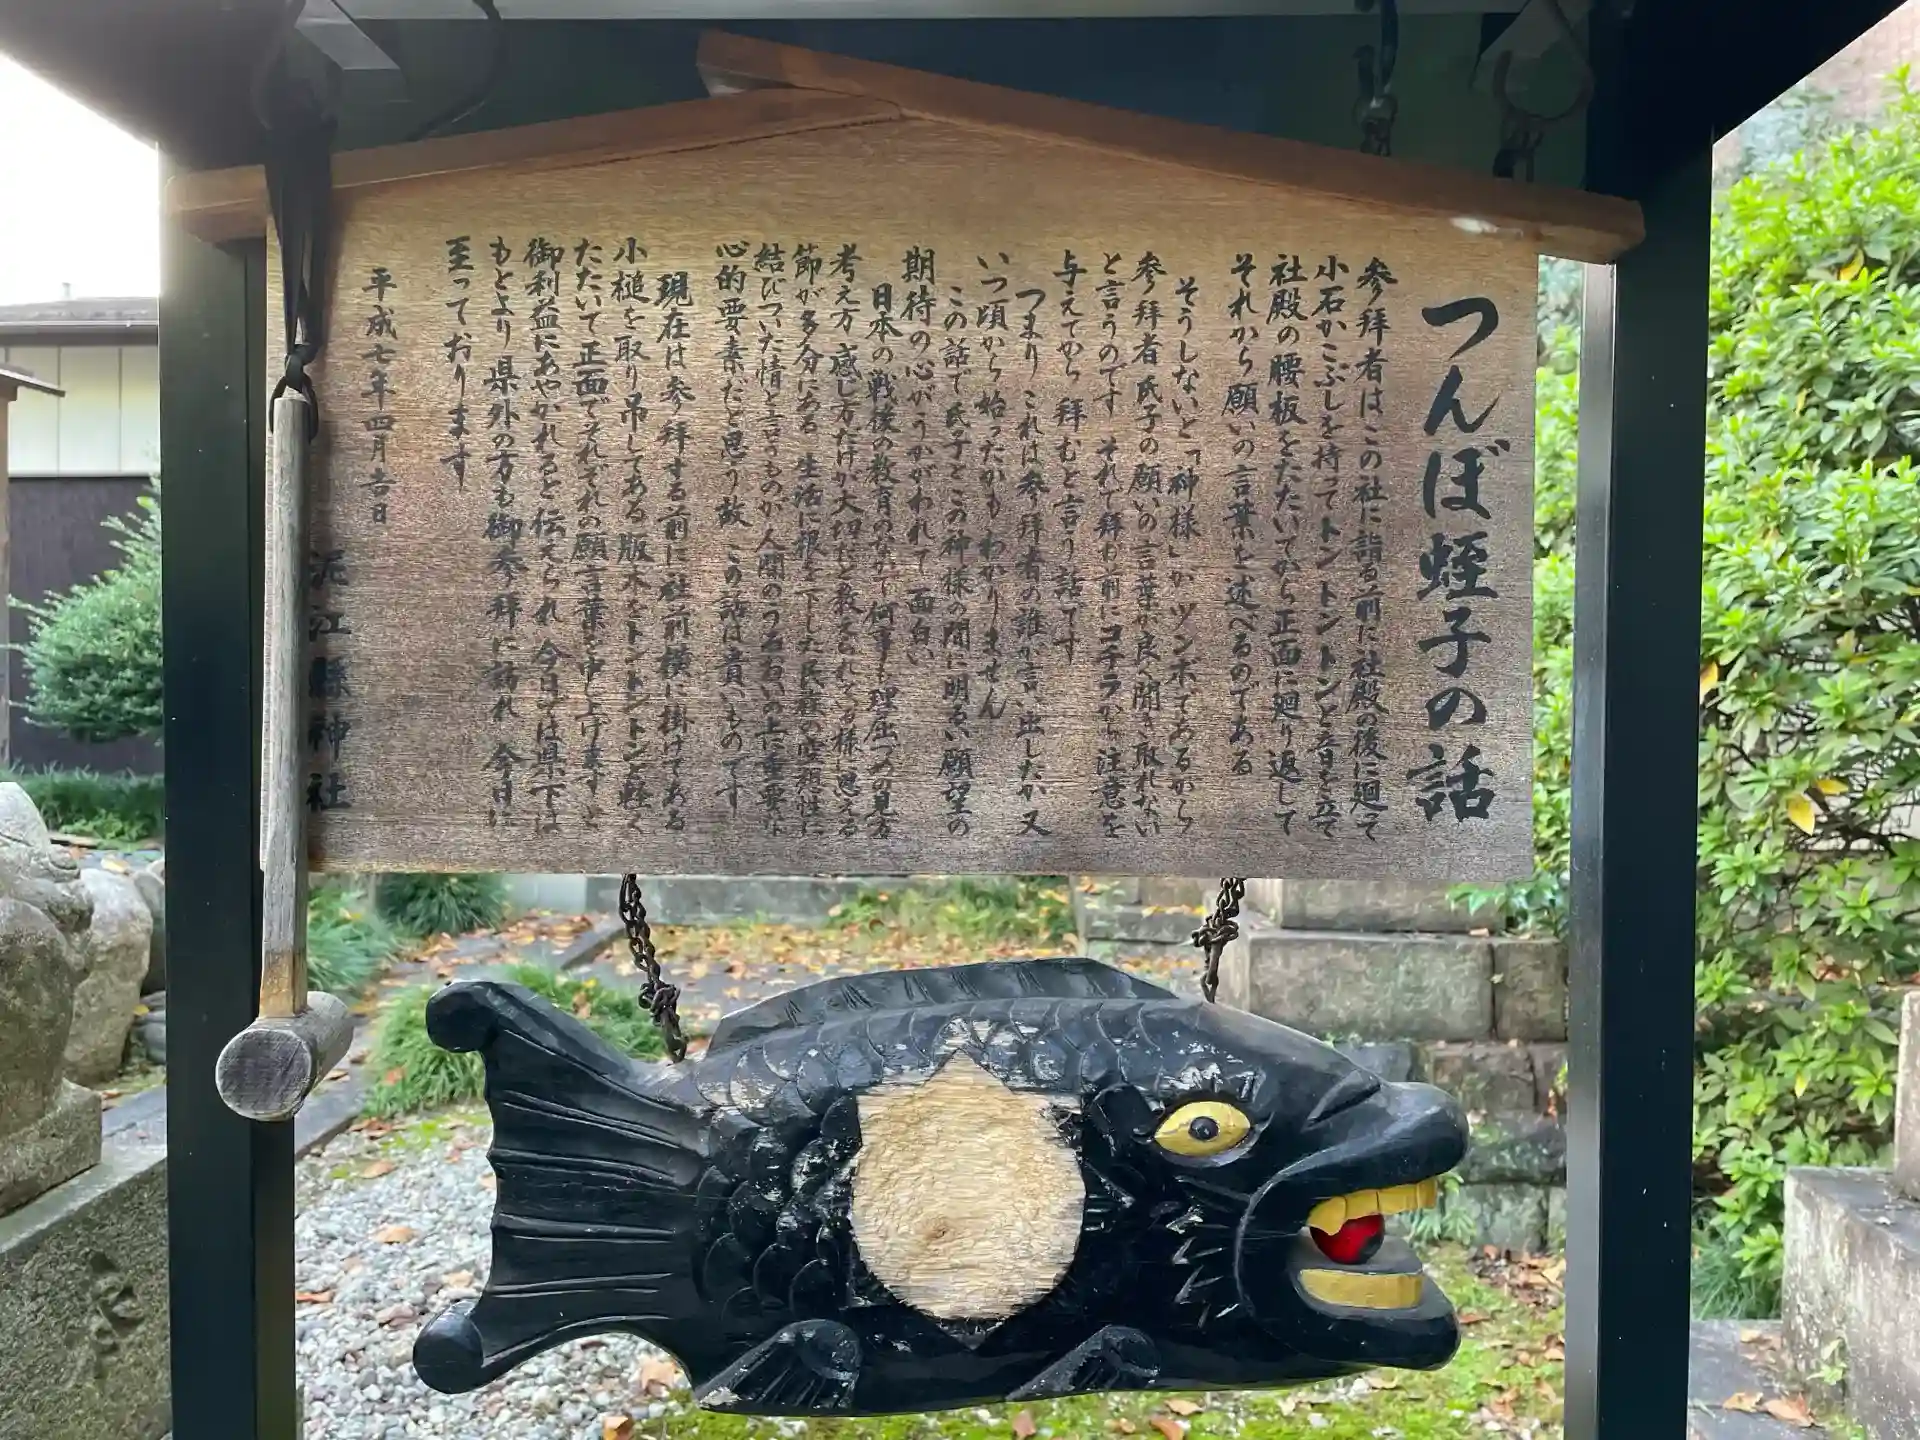 つんぼ蛭子の話
参拝者はこの社に詣る前に社殿の後に廻って
小石かこぶしを持ってトントントントンと音を立て
社殿の腰板をたたいてから正面に廻り返して
それから願いの言葉を述べるのである
そうしないと「神様」がツンボであるから
参拝者氏子の願いの言葉が良く聞き取れない
と言うのです それで拝む前にコチラから注意を
与えてから 拝むと言う話です
つまり これは参拝者の誰が言い出したか又
いつ頃から始ったかも わかりません
この話で氏子とこの神様の間に明るい願望の
期待の心がうかがわれて 面白い
日本の戦後の教育のなかで何事も理屈づみの見方
考え方 感じ方だけが大切だと教えられている様に思える
節が多分にある 生活に根を下した民衆の空想性に
結びついた情と言うものが人間のうるおいの上に重要な
心的要素だと思う故 この話は貴いものです
現在は参々拝する前に社前横に掛けてある
小槌を取り吊してある版木をトントントンと軽く
たたいて正面でそれぞれの願言葉を申し上げますと
御利益にあやかれると伝えられ 今日では県下は
もとより県外の方も御参拝に訪れ 今日に
至っております
平成七年四月吉日
泥江縣神社